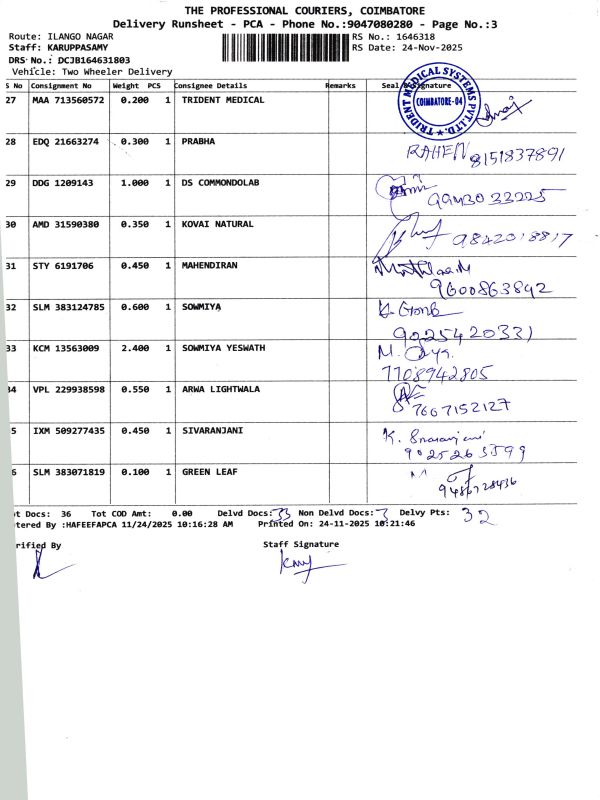 THE PROFESSIONAL COURIERS, COIMBATORE
Delivery Runsheet - PCA - Phone No.:9047080280 - Page No.:3
Route: ILANGO NAGAR RS No.: 1646318
Staff: KARUPPASAMY RS Date: 24-Nov-2025
DRS No.: DCJB164631803
Vehicle: Two Wheeler Delivery
S No Consignment No Weight PCS Consignee Details Remarks Seal Signature
27 MAA 713560572 0.200 1 TRIDENT MEDICAL
TRIDENT MEDICAL SYSTEMS PVT.LTD.
COIMBATORE-04
28 EDQ 21663274 0.300 1 PRABHA
RAHEN 8151837891
29 DDG 1209143 1.000 1 DS COMMONDOLAB
9943033225
30 AMD 31590380 0.350 1 KOVAI NATURAL
9842018817
31 STY 6191706 0.450 1 MAHENDIRAN
9600863842
32 SLM 383124785 0.600 1 SOWMIYA
9025420331
33 KCM 13563009 2.400 1 SOWMIYA YESWATH
7708942805
34 VPL 229938598 0.550 1 ARWA LIGHTWALA
7667152127
5 IXM 509277435 0.450 1 SIVARANJANI
9025263599
6 SLM 383071819 0.100 1 GREEN LEAF
9486728436
t Docs: 36 Tot COD Amt: 0.00 Delvd Docs: 33 Non Delvd Docs: 3 Delvy Pts: 32
tered By :HAFEEFAPCA 11/24/2025 10:16:28 AM Printed On: 24-11-2025 10:21:46
rified By Staff Signature